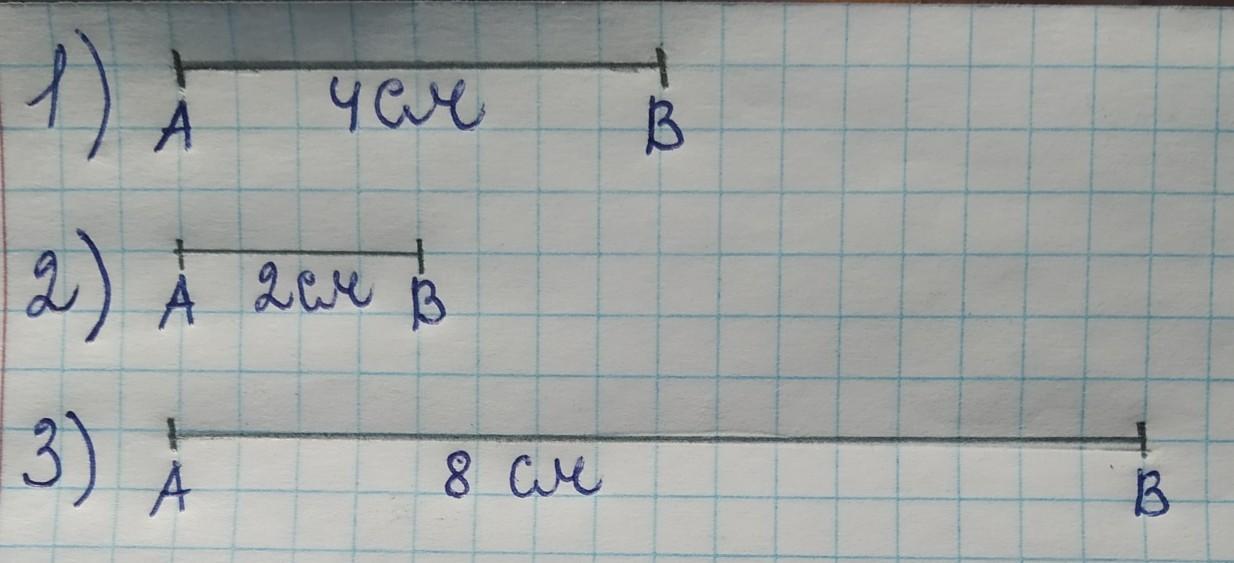 1) 4см
А В
2) А 2см В
3) А 8 см В